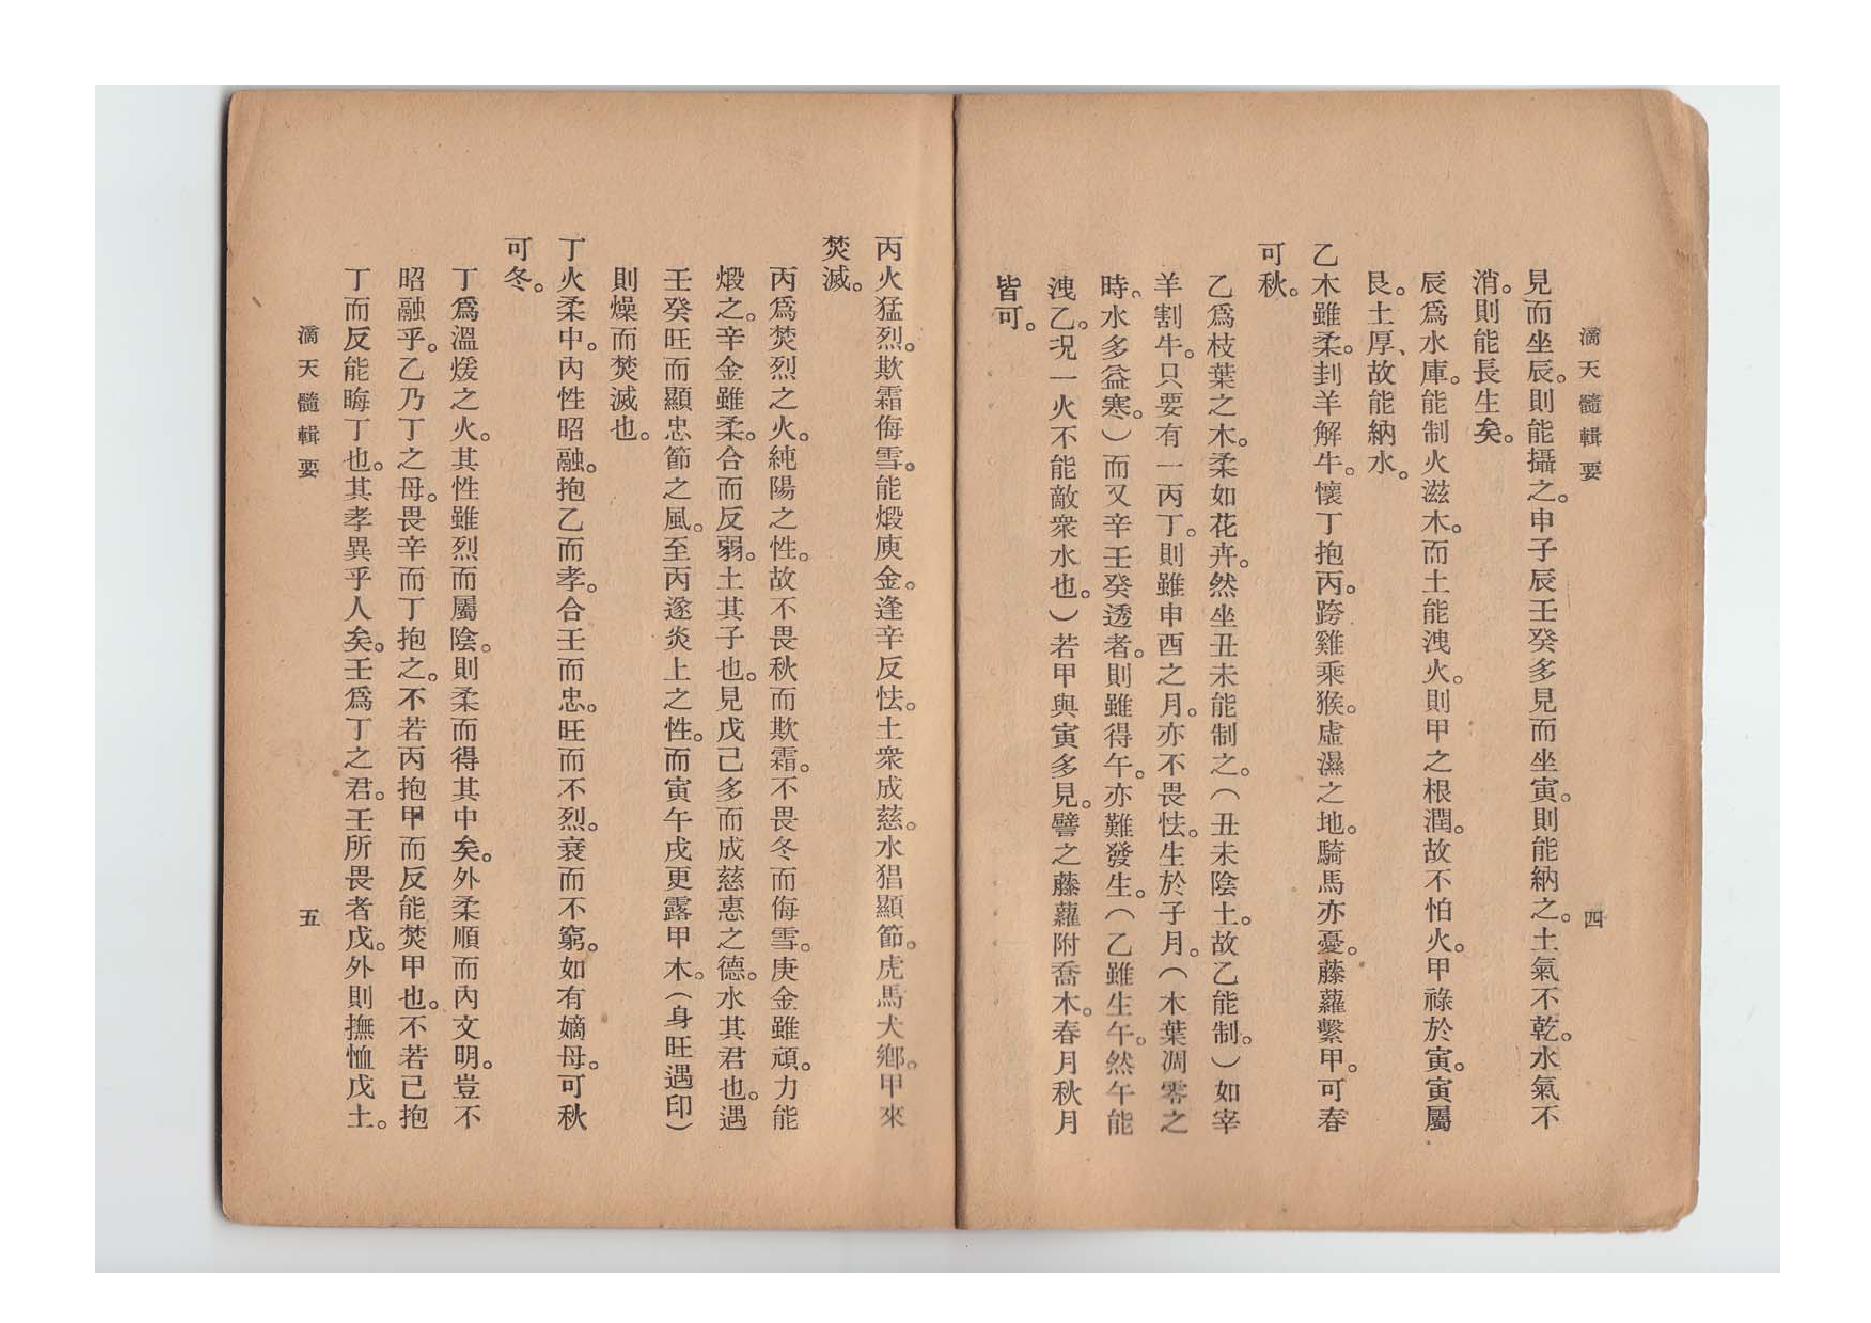 滴天髓輯要
四
見而坐辰。則能攝之。申子辰壬癸多見而坐寅。則能納之。土氣不乾。水氣不
消。則能長生矣。
辰爲水庫。能制火滋木。而土能洩火。則甲之根潤。故不怕火。甲祿於寅。寅屬
艮。土厚、故能納水。
乙木雖柔。刲羊解牛。懷丁抱丙。跨雞乘猴。虛濕之地。騎馬亦憂。藤蘿繫甲。可春
可秋。
乙爲枝葉之木。柔如花卉。然坐丑未能制之。(丑未陰土。故乙能制。)如宰
羊割牛。只要有一丙丁。則雖申酉之月。亦不畏怯。生於子月。(木葉凋零之
時。水多益寒。)而又辛壬癸透者。則雖得午。亦難發生。(乙雖生午。然午能
洩乙。況一火不能敵衆水也。)若甲與寅多見。譬之藤蘿附喬木。春月秋月
皆可。
丙火猛烈。欺霜侮雪。能煅庚金。逢辛反怯。土衆成慈。水猖顯節。虎馬犬鄉。甲來
焚滅。
丙爲焚烈之火。純陽之性。故不畏秋而欺霜。不畏冬而侮雪。庚金雖頑。力能
煅之。辛金雖柔。合而反弱。土其子也。見戊己多而成慈惠之德。水其君也。遇
壬癸旺而顯忠節之風。至丙遂炎上之性。而寅午戌更露甲木。(身旺遇印)
則燥而焚滅也。
丁火柔中。內性昭融。抱乙而孝。合壬而忠。旺而不烈。衰而不窮。如有嫡母。可秋
可冬。
丁爲溫煖之火。其性雖烈而屬陰。則柔而得其中矣。外柔順而內文明。豈不
昭融乎。乙乃丁之母。畏辛而丁抱之。不若丙抱甲而反能焚甲也。不若已抱
丁而反能晦丁也。其孝異乎人矣。壬爲丁之君。壬所畏者戊。外則撫恤戊土。
滴天髓輯要
五